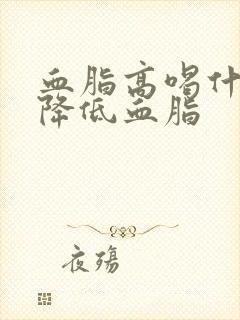 血脂高喝什
降低血脂
夜殇